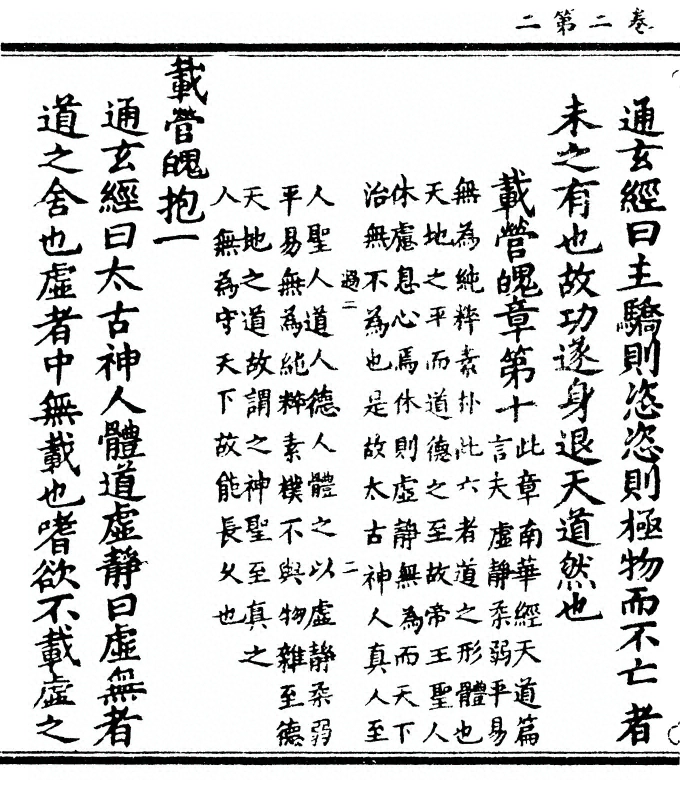 卷二第二
通玄經曰主驕則恣恣則極物而不亡者
未之有也故功遂身退天道然也
載營魄章第十
此章南華經天道篇
言夫虛靜柔弱平易
無為純粹素朴此六者道之形體也
天地之平而道德之至故帝王聖人
休慮息心焉休則虛靜無為而天下
治無不為也是故太古神人真人至
過二 二
人聖人道人德人體之以虛靜柔弱
平易無為純粹素樸不與物雜至德
天地之道故謂之神聖至真之
人無為守天下故能長久也
載營魄抱一
通玄經曰太古神人體道虛靜曰虛無者
道之舍也虛者中無載也嗜欲不載虛之